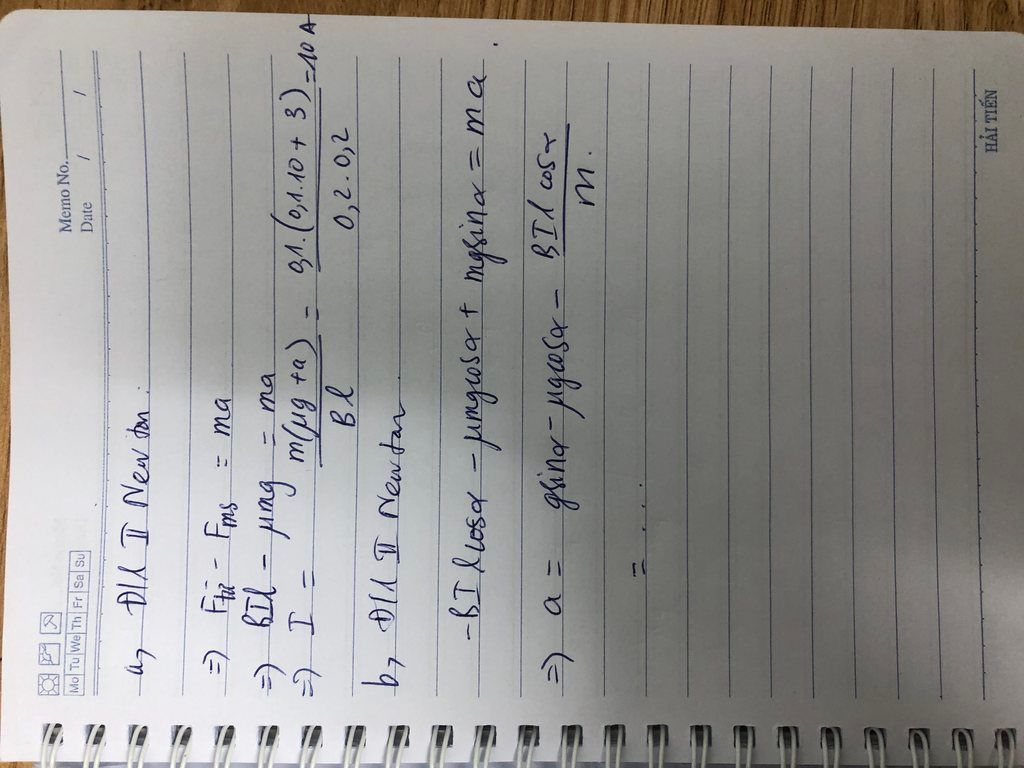 Memo No.
Date / /
Mo Tu We Th Fr Sa Su
a, ĐL II Newton.
=) Ftừ - Fms = ma
=) BIl - μmg = ma
=) I = m(μg + a) / Bl = 0,1.(0,1.10 + 3) / 0,2.0,2 = 10 A
b, ĐL II Newton
-BIlcosα - μmgcosα + mgsinα = ma.
=) a = gsinα - μgcosα - BIl cosα / m.
= ....
HẢI TIẾN